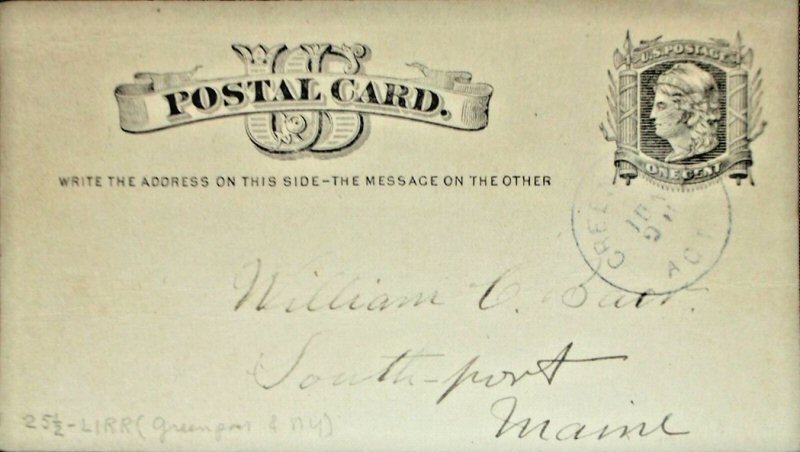 US
POSTAL CARD.
U.S. POSTAGE
ONE CENT
WRITE THE ADDRESS ON THIS SIDE-THE MESSAGE ON THE OTHER
William C.
South-port
Maine
25½-LIRR (Greenport & NY)